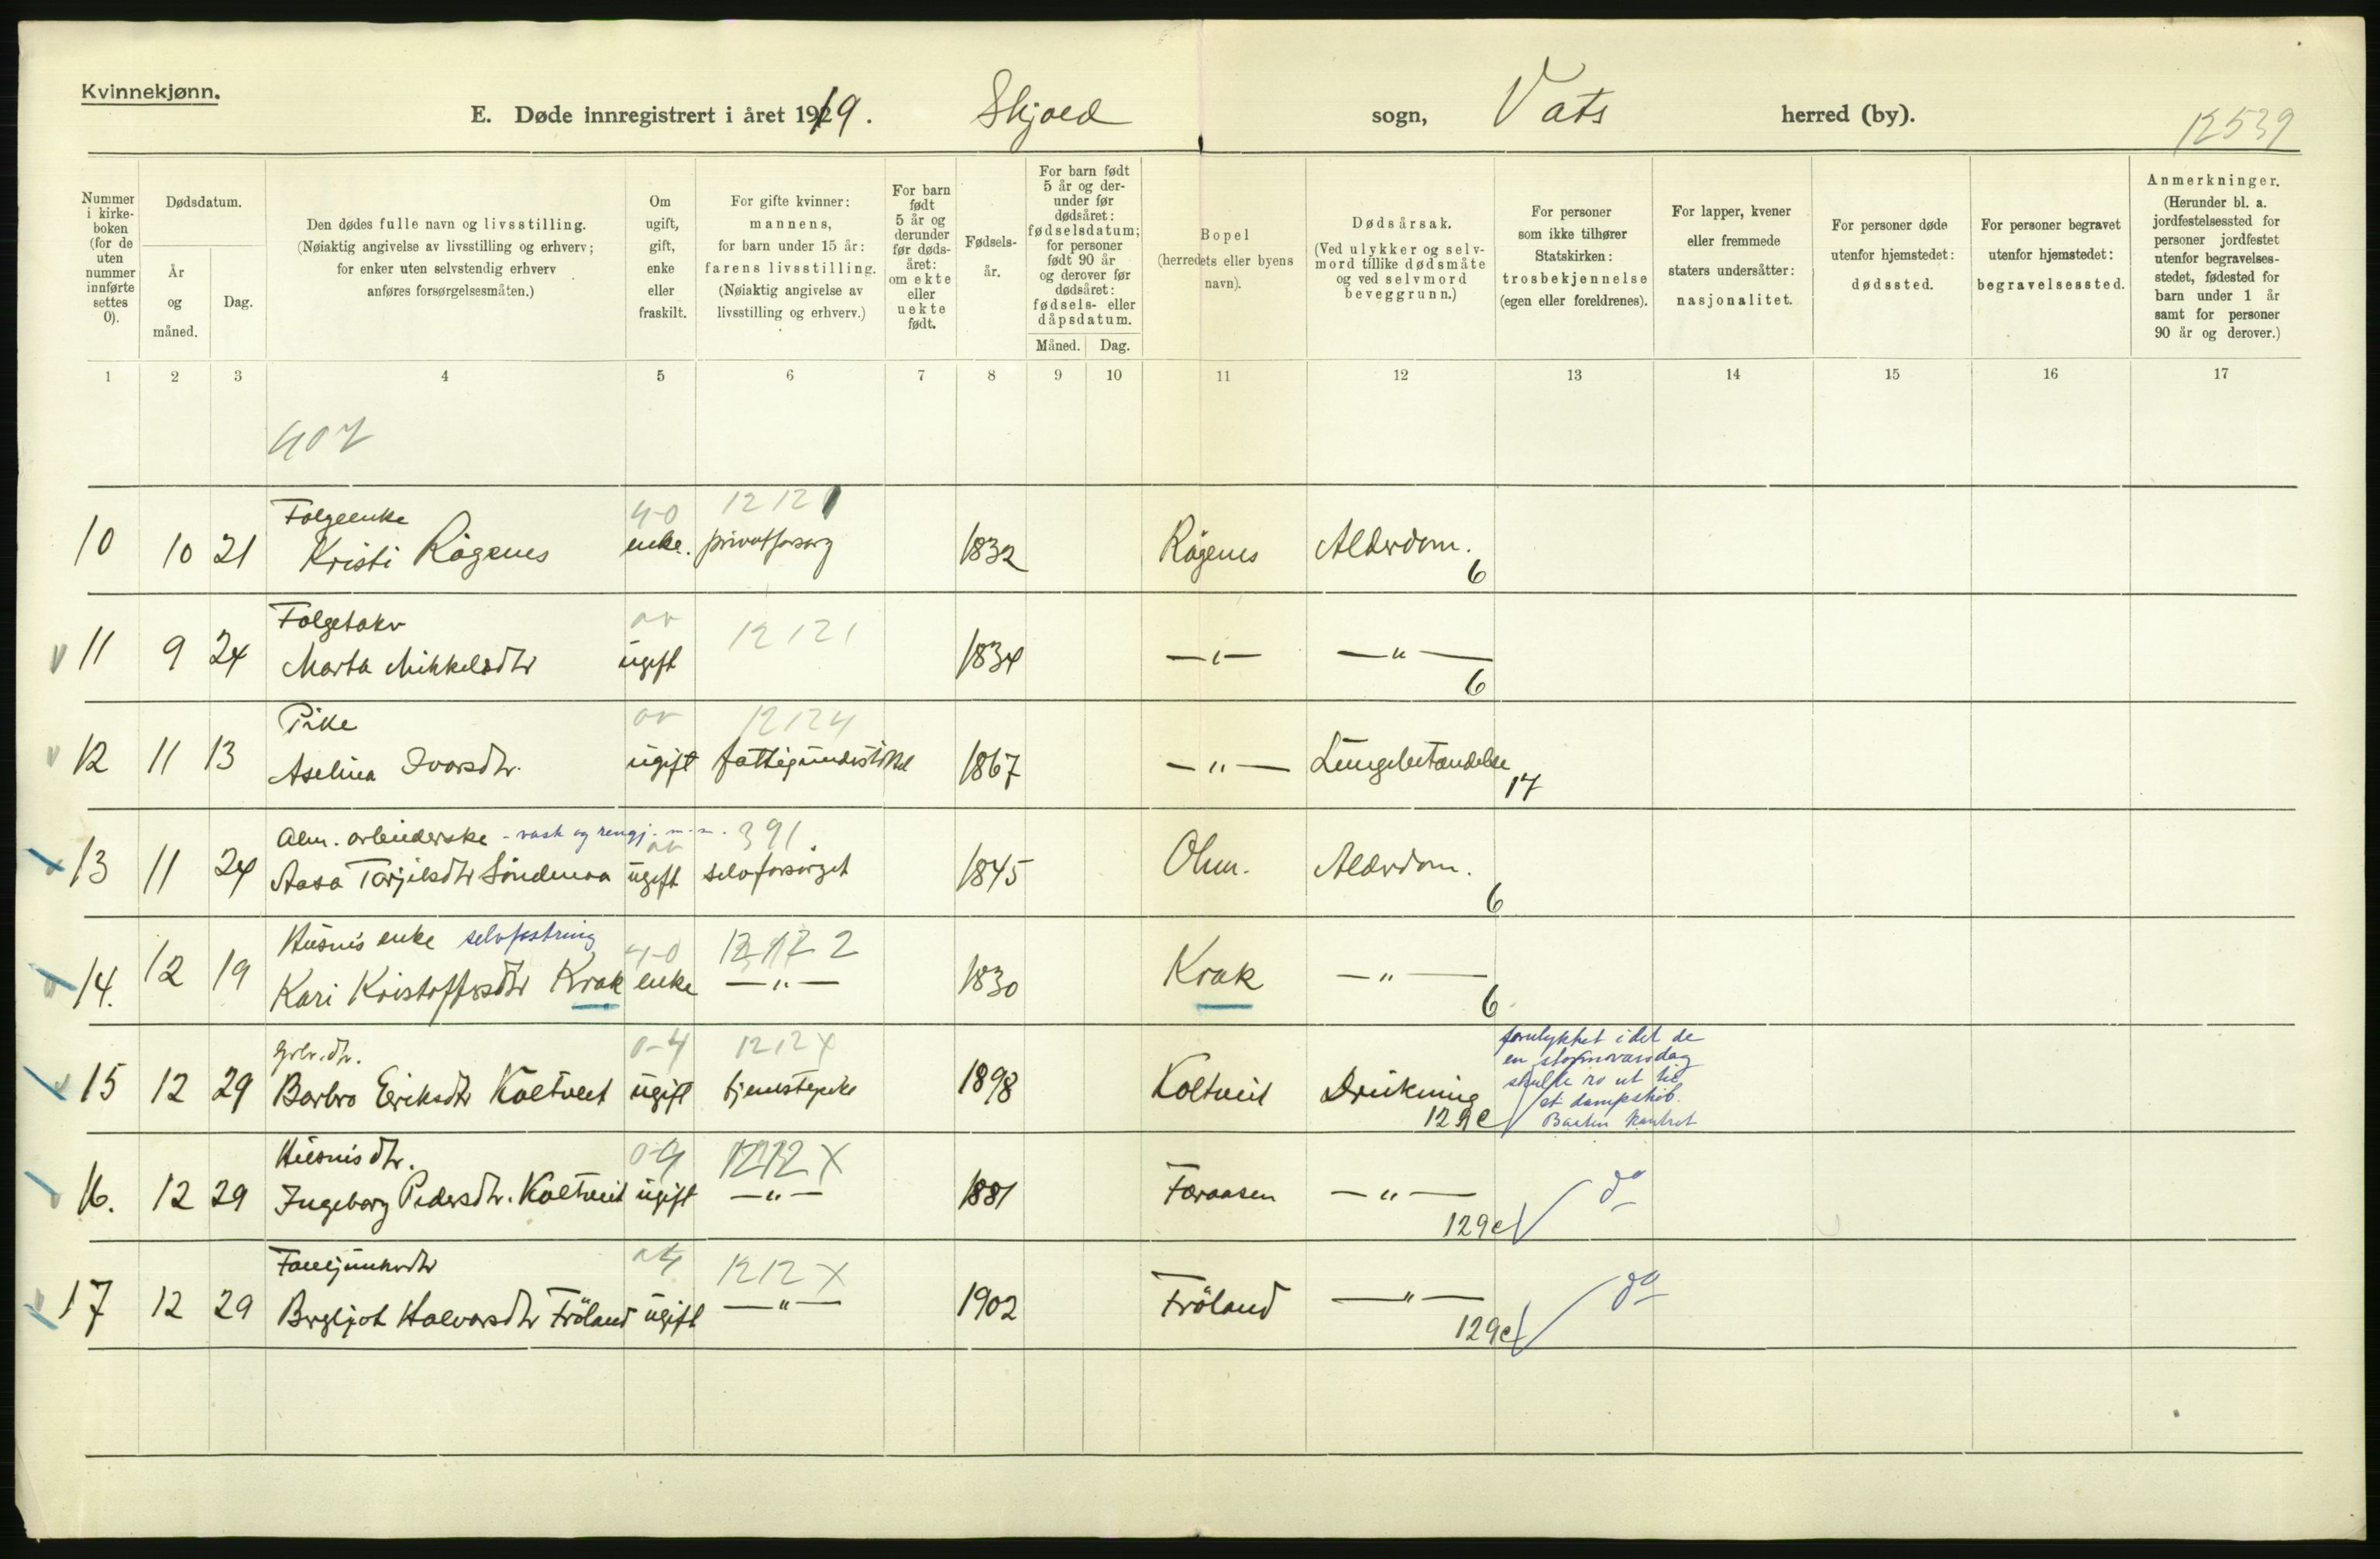 Kvinnekjønn.
E. Døde innregistrert i året 1919. Skjold sogn, Vats herred (by).
12539
Nummer i kirke-
boken
(for de
uten
nummer
innførte
settes
0).
Dødsdatum.
År
og
måned.
Dag.
Den dødes fulle navn og livsstilling.
(Nøiaktig angivelse av livsstilling og erhverv;
for enker uten selvstendig erhverv
anføres forsørgelsesmåten.)
Om
ugift,
gift,
enke
eller
fraskilt.
For gifte kvinner:
mannens,
for barn under 15 år:
farens livsstilling.
(Nøiaktig angivelse av
livsstilling og erhverv.)
For barn
født
5 år og
derunder
før døds-
året:
om ekte
eller
uekte
født.
Fødsels-
år.
For barn født
5 år og der-
under før
dødsåret:
fødselsdatum;
for personer
født 90 år
og derover før
dødsåret:
fødsels- eller
dåpsdatum.
Måned. Dag.
Bopel
(herredets eller byens
navn).
Dødsårsak.
(Ved ulykker og selv-
mord tillike dødsmåte
og ved selvmord
beveggrunn.)
For personer
som ikke tilhører
Statskirken:
trosbekjennelse
(egen eller foreldrenes).
For lapper, kvener
eller fremmede
staters undersåtter:
nasjonalitet.
For personer døde
utenfor hjemstedet:
dødssted.
For personer begravet
utenfor hjemstedet:
begravelsessted.
Anmerkninger.
(Herunder bl. a.
jordfestelsessted for
personer jordfestet
utenfor begravelses-
stedet, fødested for
barn under 1 år
samt for personer
90 år og derover.)
1 2 3 4 5 6 7 8 9 10 11 12 13 14 15 16 17
407
Folgeenke 4-0 12 121
10 10 21 Kristi Rågenes enke. privatforsorg 1832 Rågenes Alderdom.
6
Folgetaker 12 121
11 9 24 Marta Mikkelsdtr ugift 1834 —„— —„—
6
Pike 12 124
12 11 13 Aselina Ivarsdtr. ugift fattigunderstøttet 1867 —„— Lungebetændelse
17
Alm. arbeiderske - vask og rengj. m.m. 391
13 11 24 Aasa Torjilsdtr Söndenaa ugift selvforsørget 1845 Ølen. Alderdom.
6
Husm's enke selvfostring 4-0 12 122
14. 12 19 Kari Kristoffersdtr Krak enke —„— 1830 Krak —„—
6
grbr. dtr. 0-4 12 12 X
15 12 29 Barbro Eriksdtr Koltveit ugift tjenestepike 1898 Koltveit Drukning
129c
forulykket i det de
en stormværsdag
skulle ro ut til
et dampskib.
Baaten kantret
Husm's dtr. 0-4 1212 X
16. 12 29 Ingeborg Pedersdtr. Koltveit ugift —„— 1881 Foraasen —„— do
129c
1212 X
17 12 29 Bergljot Halvorsdtr Fröland ugift —„— 1902 Fröland —„— do
129c